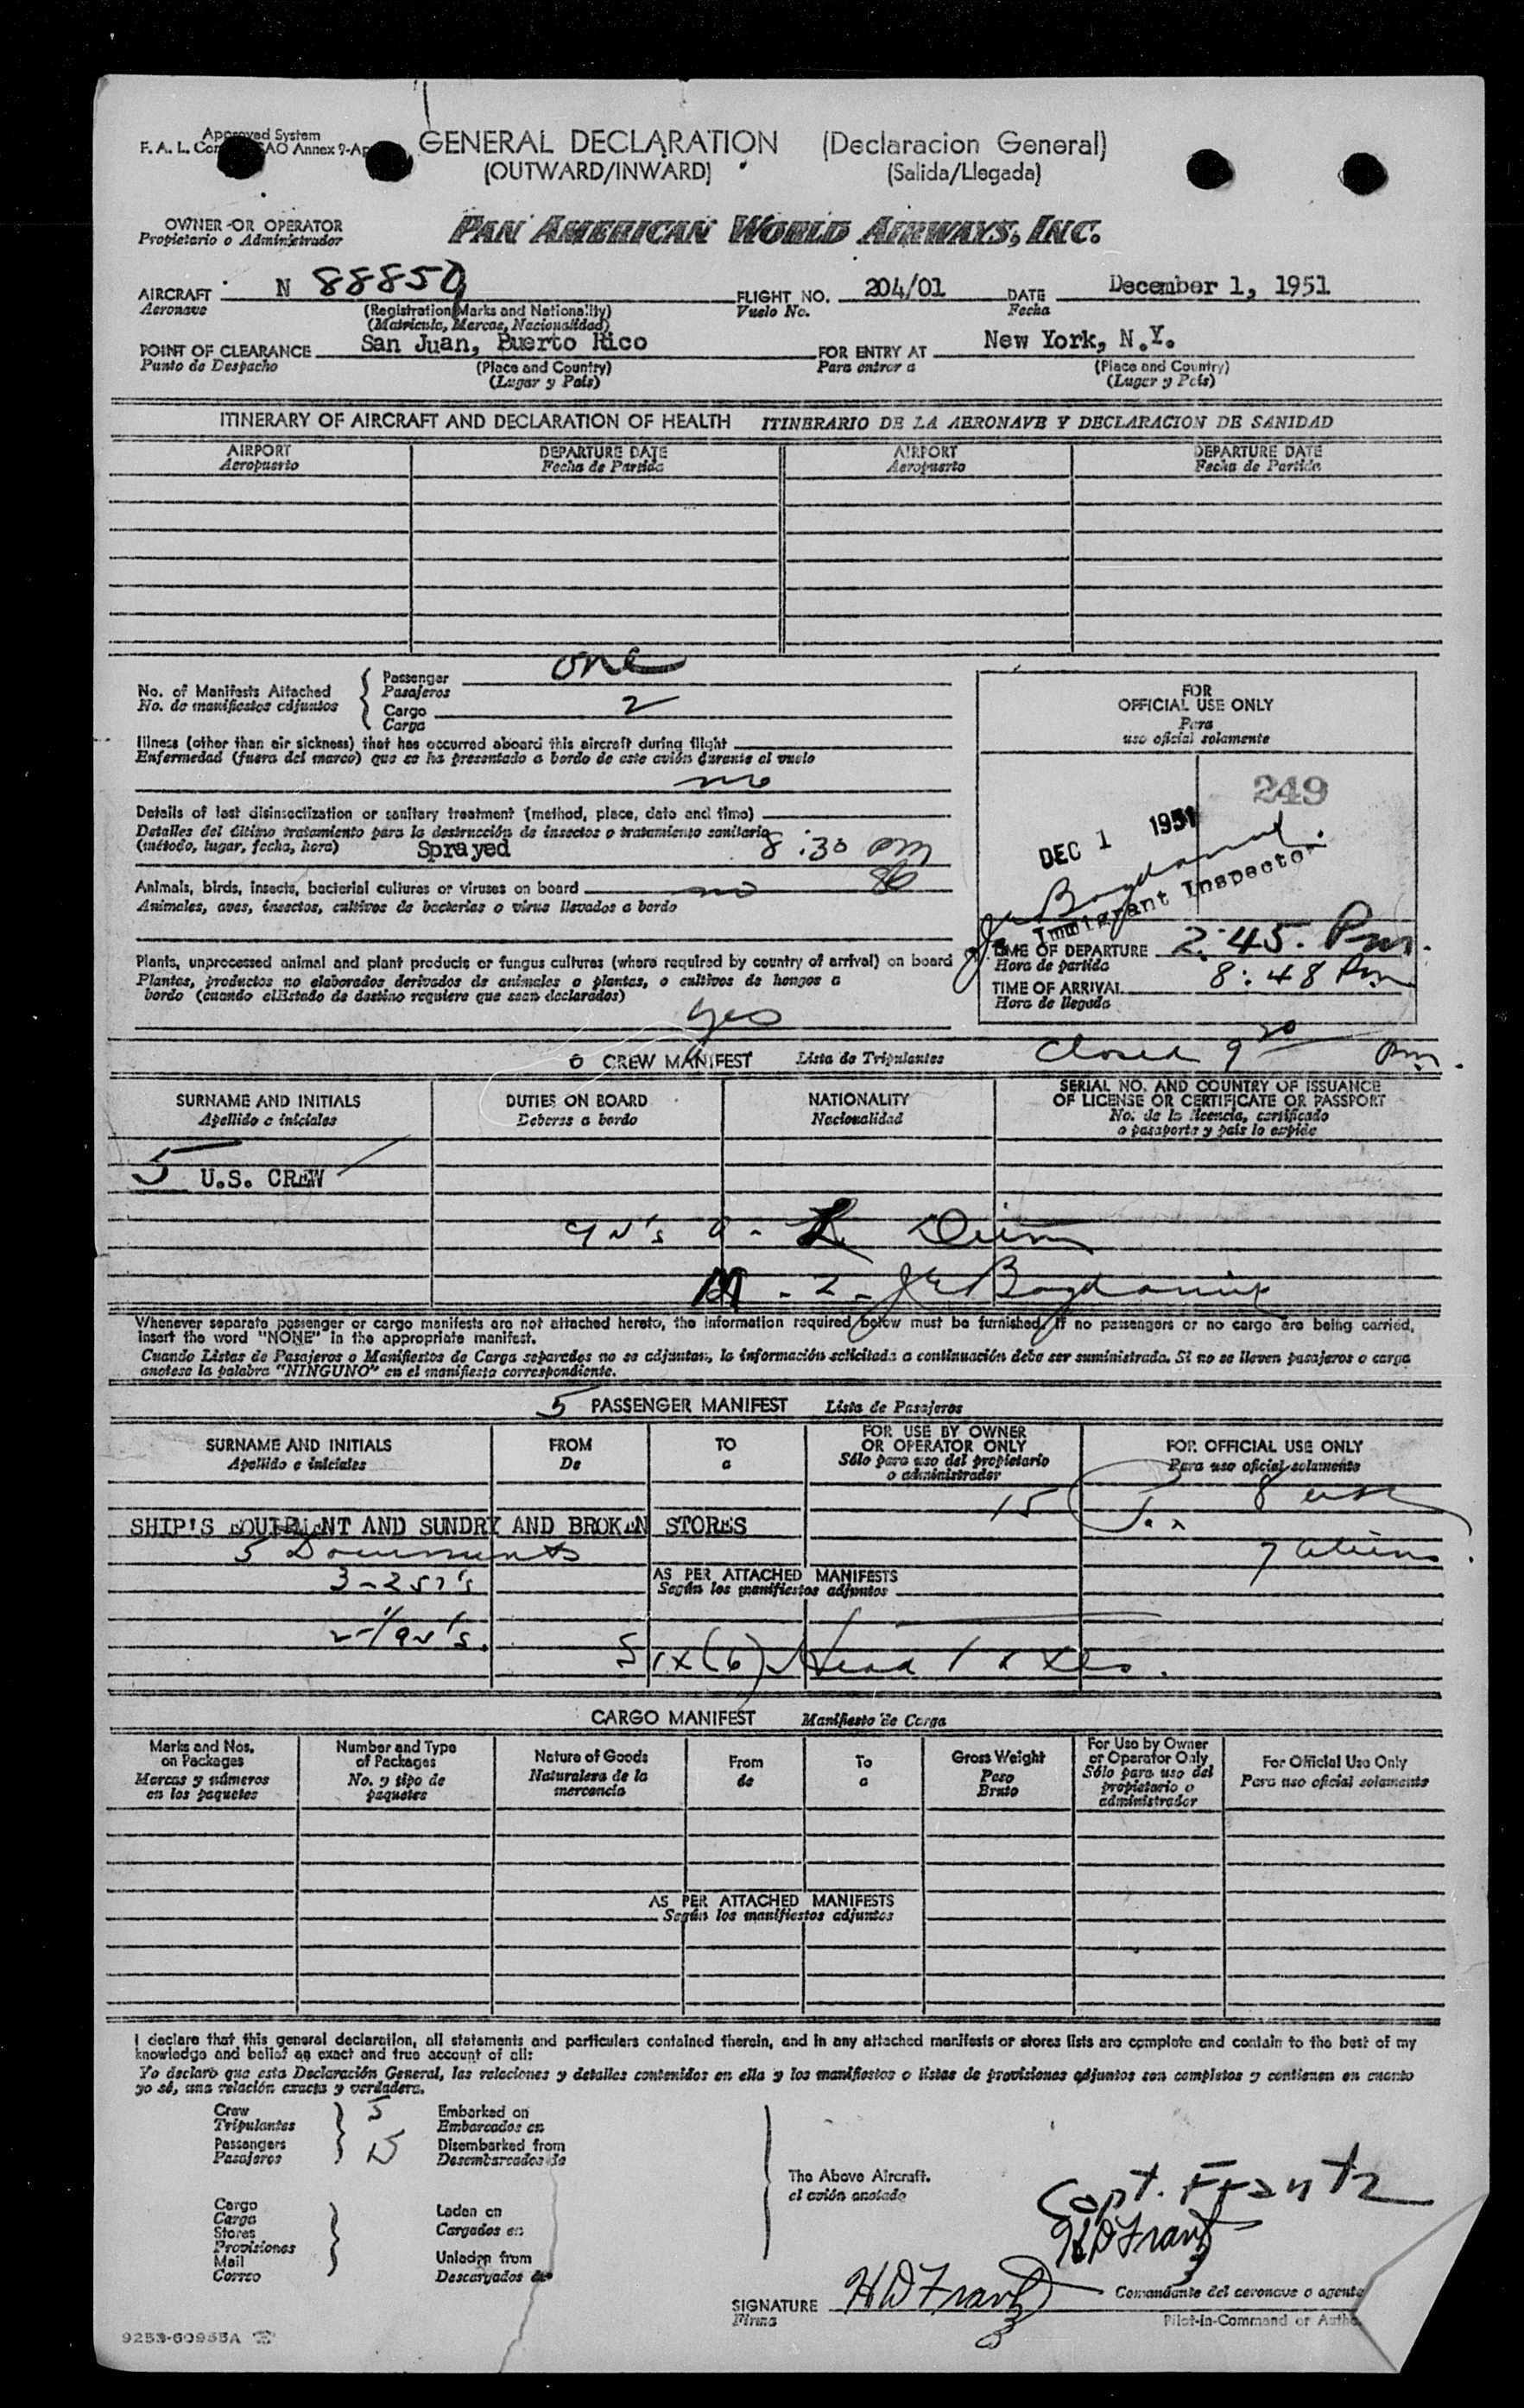 Approved System
F. A. L. Annex 9-
GENERAL DECLARATION (Declaracion General)
(OUTWARD/INWARD) (Salida/Llegada)
OWNER OR OPERATOR
Propietario o Administrador
PAN AMERICAN WORLD AIRWAYS, INC.
AIRCRAFT N 88859 FLIGHT NO. 204/01 DATE December 1, 1951
Aeronave (Registration Marks and Nationality) Vuelo No. Fecha
(Matricula, Marcas, Nacionalidad)
POINT OF CLEARANCE San Juan, Puerto Rico FOR ENTRY AT New York, N.Y.
Punto de Despacho (Place and Country) Para entrar a (Place and Country)
(Lugar y País) (Lugar y País)
ITINERARY OF AIRCRAFT AND DECLARATION OF HEALTH ITINERARIO DE LA AERONAVE Y DECLARACION DE SANIDAD
AIRPORT DEPARTURE DATE AIRPORT DEPARTURE DATE
Aeropuerto Fecha de Partida Aeropuerto Fecha de Partida
No. of Manifests Attached
No. de manifiestos adjuntos
Passenger one
Pasajeros
Cargo 2
Carga
Illness (other than air sickness) that has occurred aboard this aircraft during flight
Enfermedad (fuera del mareo) que se ha presentado a bordo de este avión durante el vuelo
no
Details of last disinsectization or sanitary treatment (method, place, date and time)
Detalles del último tratamiento para la destrucción de insectos o tratamiento sanitario
(método, lugar, fecha, hora) Sprayed 8:30 pm
Animals, birds, insects, bacterial cultures or viruses on board no
Animales, aves, insectos, cultivos de bacterias o virus llevados a bordo
Plants, unprocessed animal and plant products or fungus cultures (where required by country of arrival) on board
Plantas, productos no elaborados derivados de animales o plantas, o cultivos de hongos a
bordo (cuando el Estado de destino requiere que sean declarados)
yes
FOR
OFFICIAL USE ONLY
Para
uso oficial solamente
249
DEC 1 1951
Immigrant Inspector
TIME OF DEPARTURE 2:45. Pm.
Hora de partida
TIME OF ARRIVAL 8:48 Pm
Hora de llegada
Closed 9 30 pm.
CREW MANIFEST Lista de Tripulantes
SURNAME AND INITIALS DUTIES ON BOARD NATIONALITY SERIAL NO. AND COUNTRY OF ISSUANCE
OF LICENSE OR CERTIFICATE OR PASSPORT
Apellido e iniciales Deberes a bordo Nacionalidad No. de la licencia, certificado
o pasaporte y país lo expide
5 U.S. CREW
M - 2 -
Whenever separate passenger or cargo manifests are not attached hereto, the information required below must be furnished. If no passengers or no cargo are being carried,
insert the word "NONE" in the appropriate manifest.
Cuando Listas de Pasajeros o Manifiestos de Carga separados no se adjuntan, la información solicitada a continuación debe ser suministrada. Si no se lleven pasajeros o carga
anotese la palabra "NINGUNO" en el manifiesto correspondiente.
5 PASSENGER MANIFEST Lista de Pasajeros
SURNAME AND INITIALS FROM TO FOR USE BY OWNER
OR OPERATOR ONLY FOR OFFICIAL USE ONLY
Apellido e iniciales De a Sólo para uso del propietario
o administrador Para uso oficial solamente
15 Pax 8
SHIP'S EQUIPMENT AND SUNDRY AND BROKEN STORES
5 Documents 7 aliens
3-257's AS PER ATTACHED MANIFESTS
Según los manifiestos adjuntos
Six (6) Head Taxes.
CARGO MANIFEST Manifiesto de Carga
Marks and Nos.
on Packages
Marcas y números
en los paquetes
Number and Type
of Packages
No. y tipo de
paquetes
Nature of Goods
Naturaleza de la
mercancia
From
de
To
a
Gross Weight
Peso
Bruto
For Use by Owner
or Operator Only
Sólo para uso del
propietario o
administrador
For Official Use Only
Para uso oficial solamente
AS PER ATTACHED MANIFESTS
Según los manifiestos adjuntos
I declare that this general declaration, all statements and particulars contained therein, and in any attached manifests or stores lists are complete and contain to the best of my
knowledge and belief an exact and true account of all:
Yo declaro que esta Declaración General, las relaciones y detalles contenidos en ella y los manifiestos o listas de provisiones adjuntos son completos y contienen en cuanto
yo sé, una relación exacta y verdadera.
Crew 5 Embarked on
Tripulantes Embarcados en
Passengers 15 Disembarked from
Pasajeros Desembarcados de
The Above Aircraft.
el avión anotado
Cargo
Carga
Stores
Provisiones
Mail
Correo
Laden on
Cargados en
Unladen from
Descargados de
Capt. Frantz
HDFrantz
SIGNATURE HDFrantz
Firma
Comandante del aeronave o agente
Pilot-in-Command or
9253-60955A